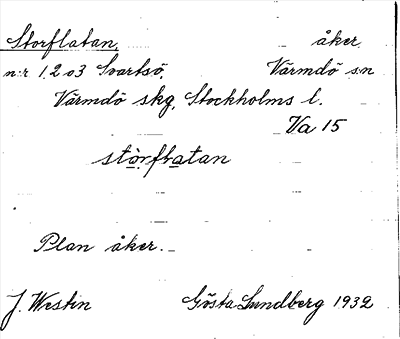 Storflatan, åker,
n:r 1, 2 o 3 Svartsö, Värmdö sn
Värmdö skg, Stockholms l.
Va 15
stòrflatan
Plan åker.
J. Westin Gösta Lundberg 1932